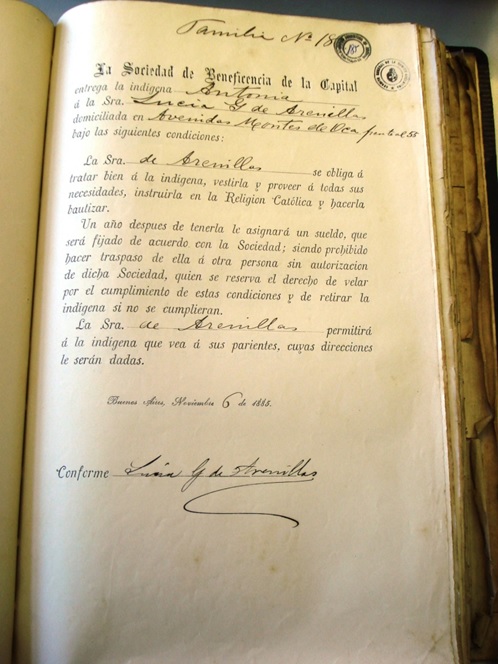 Familia Nº 18
185
La Sociedad de Beneficencia de la Capital
entrega la indígena Antonia
á la Sra. Lucia G de Arenillas
domiciliada en Avenidas Montes de Oca frente al 58
bajo las siguientes condiciones:
La Sra. de Arenillas se obliga á
tratar bien á la indígena, vestirla y proveer á todas sus
necesidades, instruirla en la Religion Católica y hacerla
bautizar.
Un año despues de tenerla le asignará un sueldo, que
será fijado de acuerdo con la Sociedad; siendo prohibido
hacer traspaso de ella á otra persona sin autorizacion
de dicha Sociedad, quien se reserva el derecho de velar
por el cumplimiento de estas condiciones y de retirar la
indígena si no se cumplieran.
La Sra. de Arenillas permitirá
á la indígena que vea á sus parientes, cuyas direcciones
le serán dadas.
Buenos Aires, Noviembre 6 de 1885.
Conforme Lucia G de Arenillas